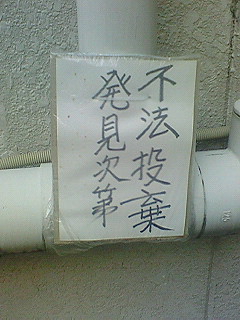 不法投棄
発見次第